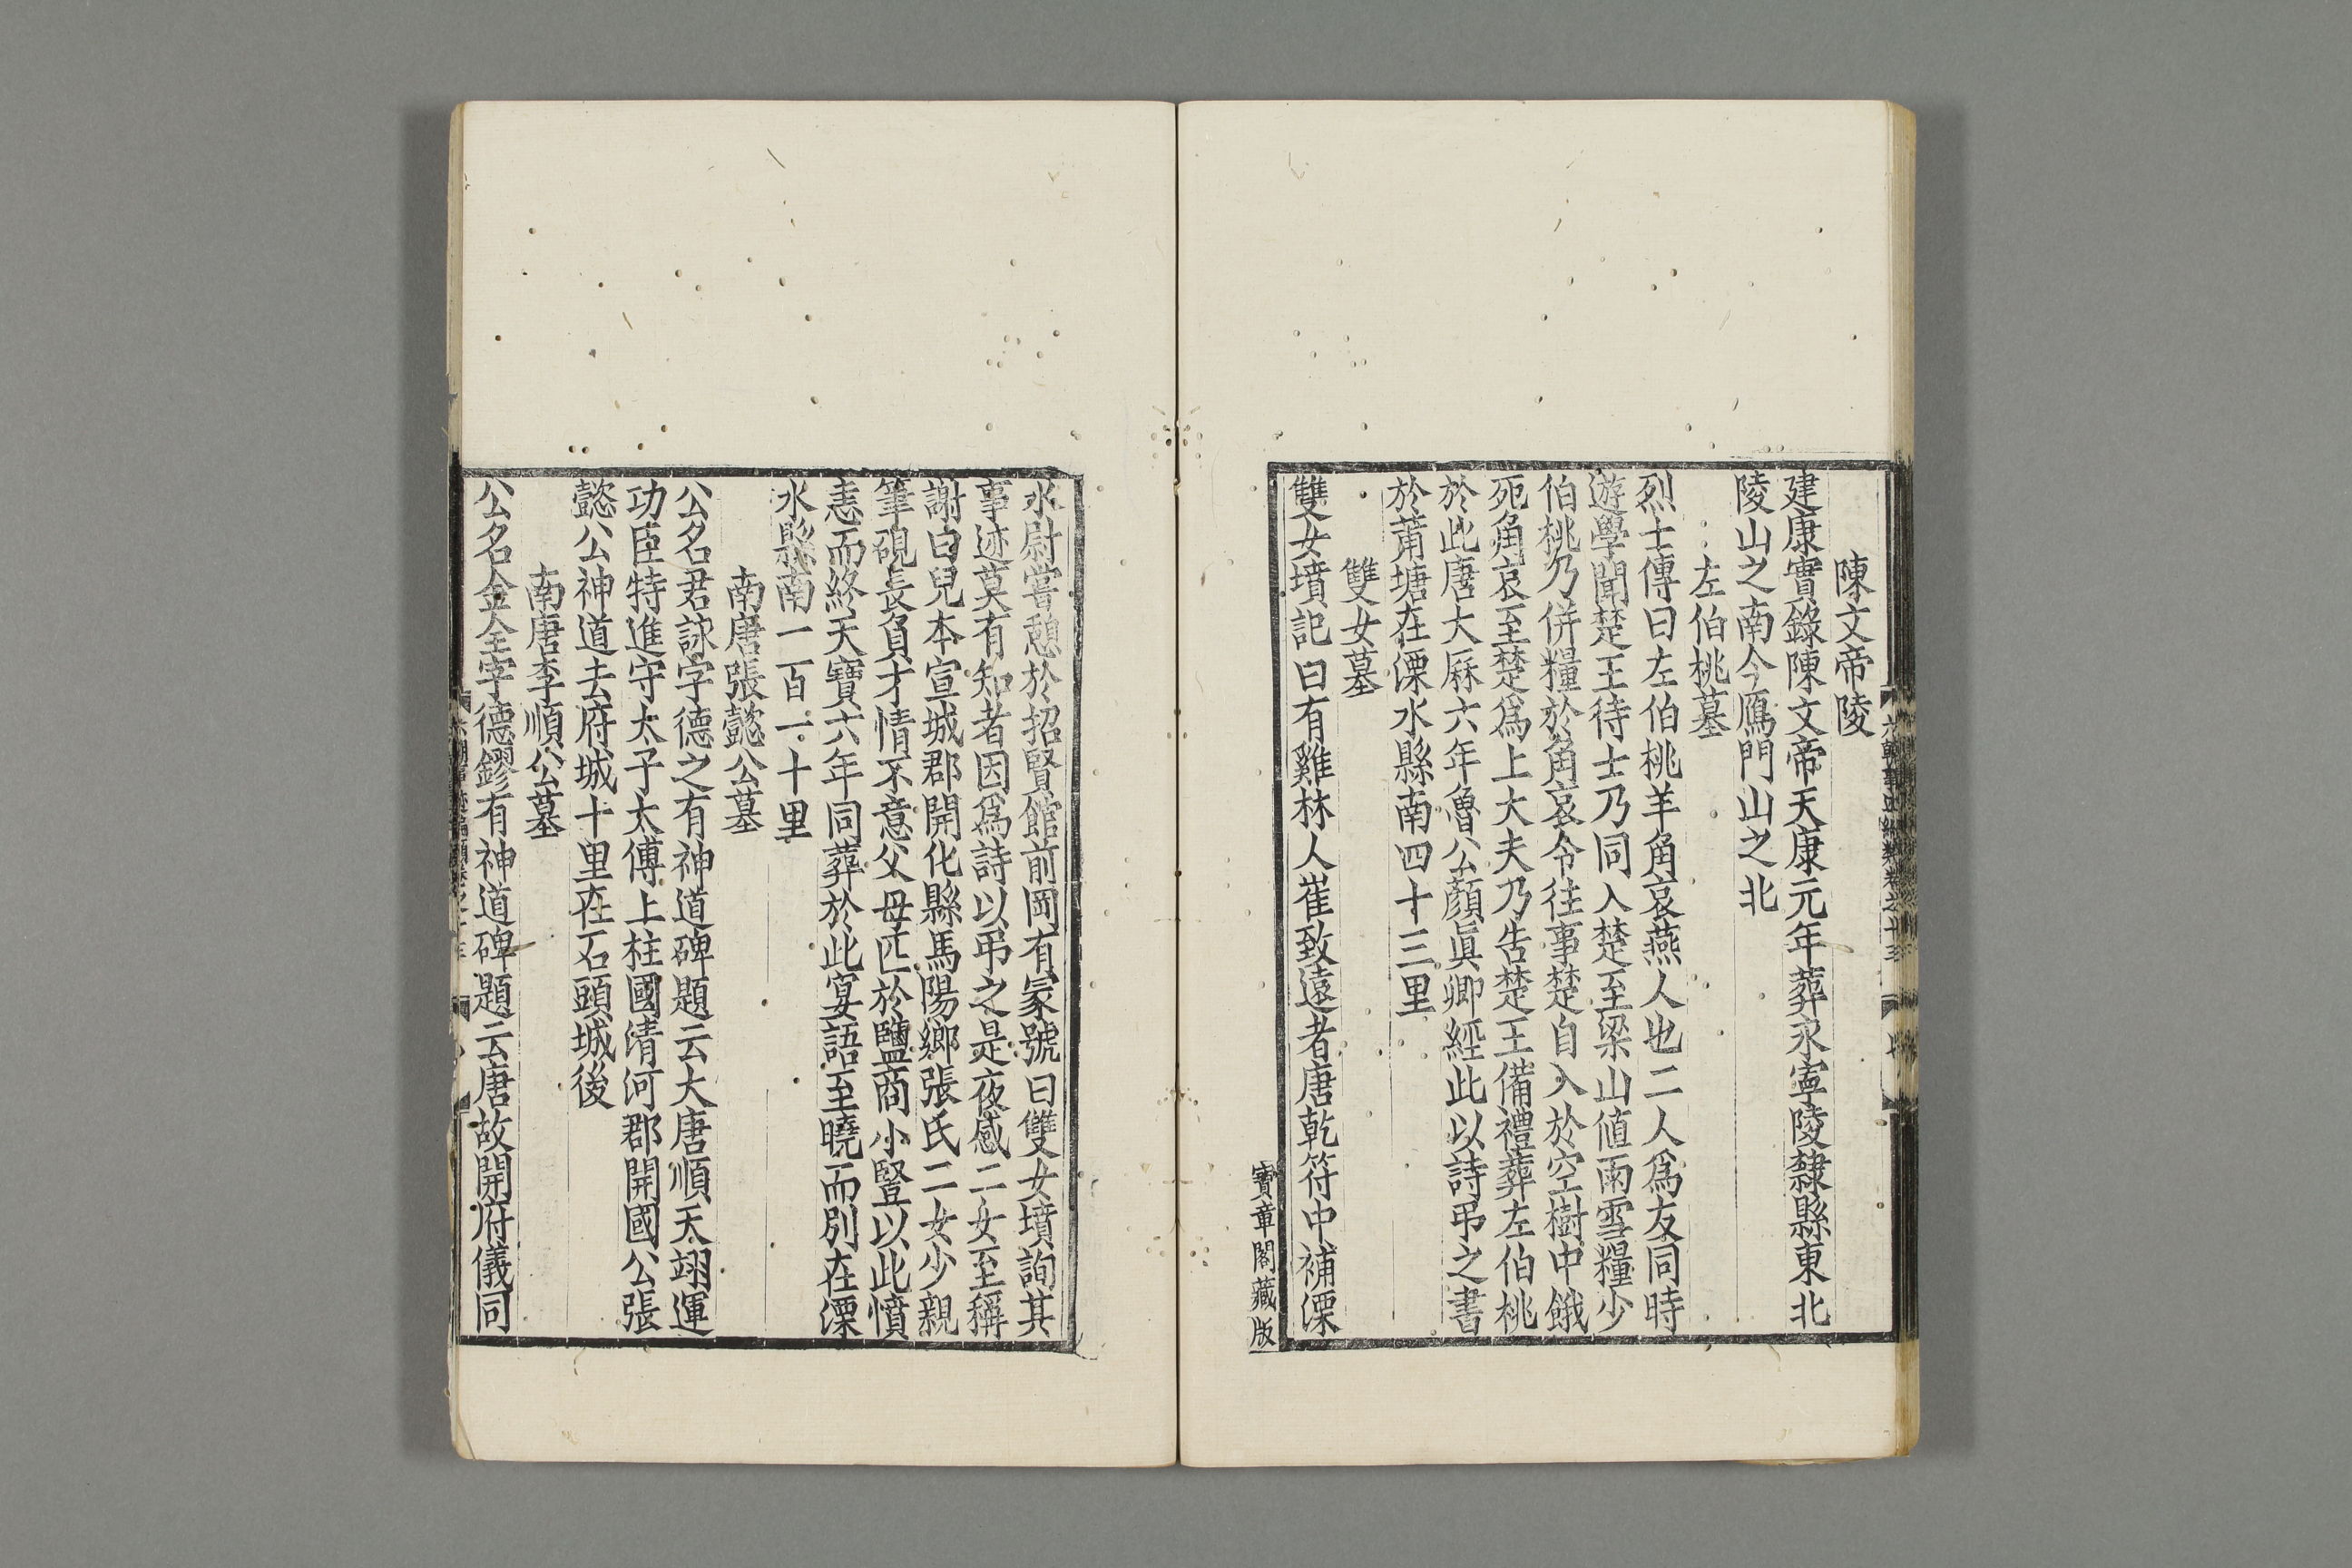 陳文帝陵
建康實錄陳文帝天康元年葬永寧陵隸縣東北
陵山之南今鴈門山之北
左伯桃墓
烈士傳曰左伯桃羊角哀燕人也二人爲友同時
遊學聞楚王待士乃同入楚至梁山値雨雪糧少
伯桃乃併糧於角哀令往事楚自入於空樹中餓
死角哀至楚爲上大夫乃告楚王備禮葬左伯桃
於此唐大厤六年魯公顏眞卿經此以詩弔之書
於莆塘在溧水縣南四十三里
雙女墓
雙女墳記曰有雞林人崔致遠者唐乾符中補溧
寶章閣藏版
水尉嘗憩於招賢館前岡有冢號曰雙女墳詢其
事迹莫有知者因爲詩以弔之是夜感二女至稱
謝曰兒本宣城郡開化縣馬陽鄉張氏二女少親
筆硯長負才情不意父母匹於鹽商小豎以此憤
恚而終天寶六年同葬於此宴語至曉而別在溧
水縣南一百一十里
南唐張懿公墓
公名君詠字德之有神道碑題云大唐順天翊運
功臣特進守太子太傅上柱國清河郡開國公張
懿公神道去府城十里在石頭城後
南唐李順公墓
公名金全字德鏐有神道碑題云唐故開府儀同